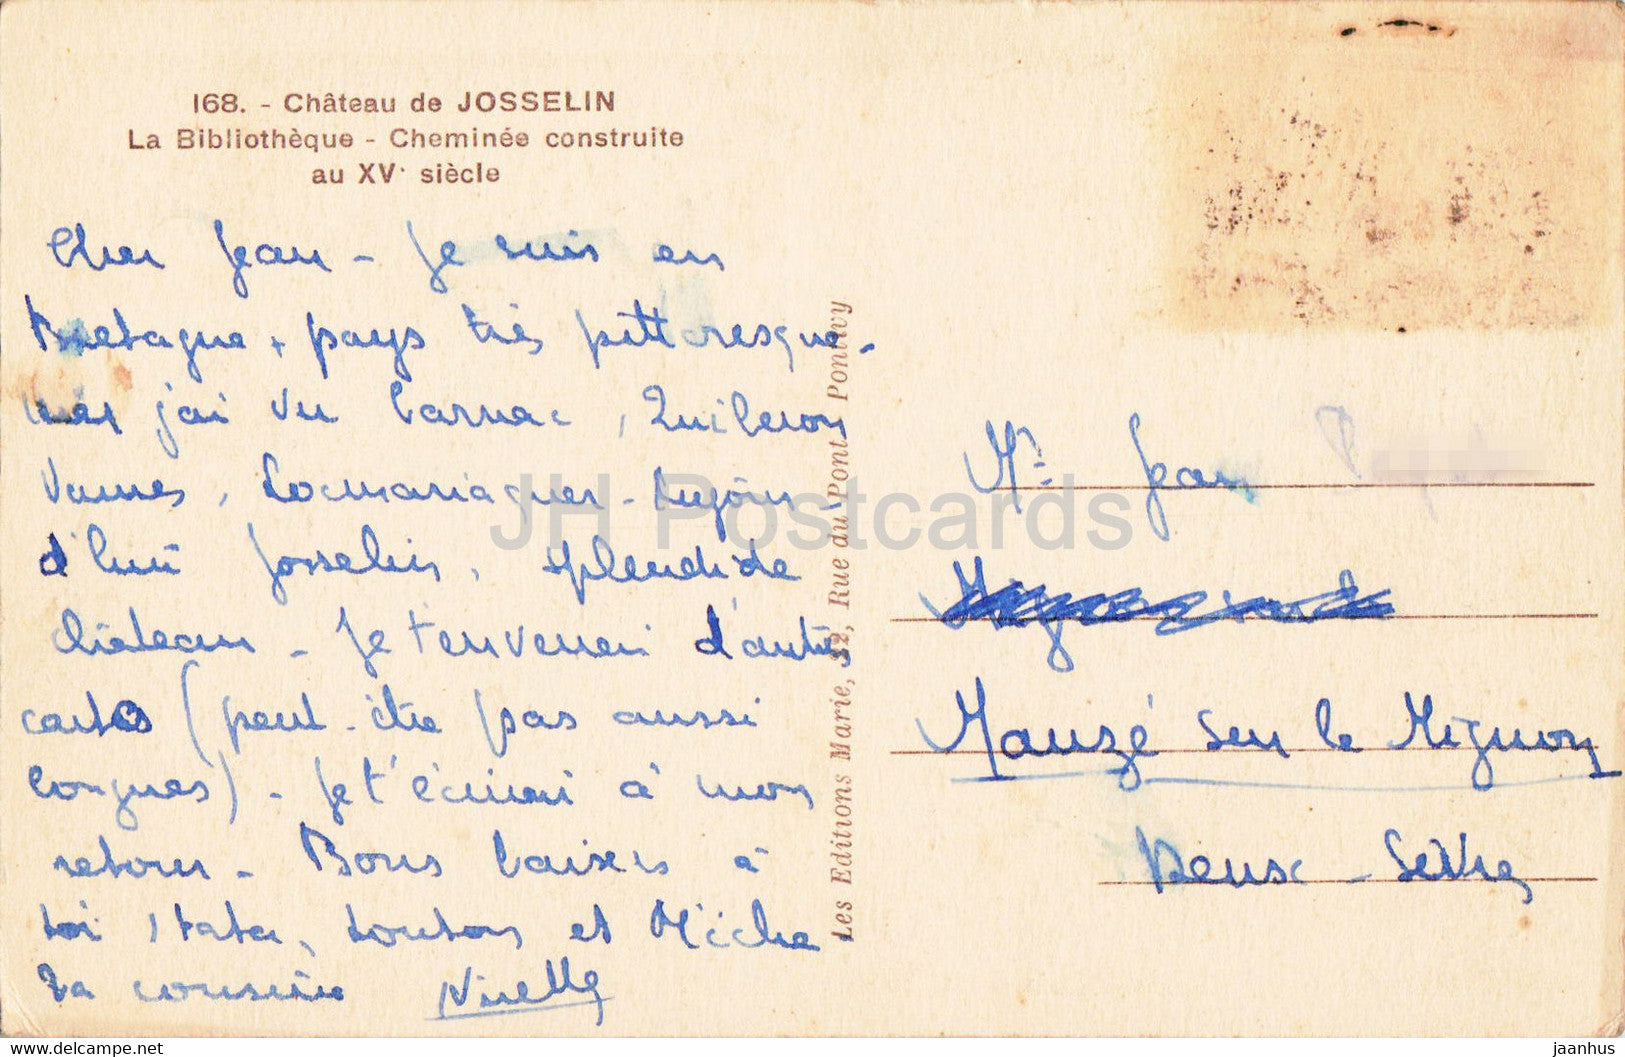 168. - Château de JOSSELIN
La Bibliothèque - Cheminée construite
au XVe siècle
Cher Jean - Je suis en
Bretagne, pays très pittoresque -
j'ai vu Carnac, Quiberon
Vannes, Locmariaquer - Aujour
d'hui Josselin, splendide
château - Je t'enverrai d'autres
cartes (peut-être pas aussi
longues) - Je t'écrirai à mon
retour - Bons baisers à
toi, tata, tonton et Miche
Ta cousine
Les Editions Marie, 32, Rue du Pont, Pontivy
Mr Jean
Mauzé sur le Mignon
Deux-Sèvres
JH Postcards
hippostcard.com/store/jhpostcards
jaanhus